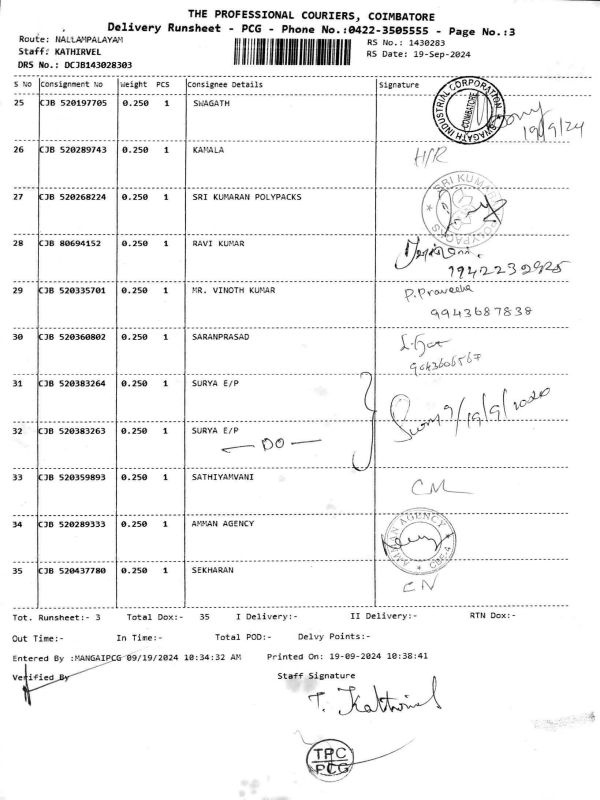 THE PROFESSIONAL COURIERS, COIMBATORE
Delivery Runsheet - PCG - Phone No.:0422-3505555 - Page No.:3
Route: NALLAMPALAYAM RS No.: 1430283
Staff: KATHIRVEL RS Date: 19-Sep-2024
DRS No.: DCJB143028303
S No Consignment No Weight PCS Consignee Details Signature
25 CJB 520197705 0.250 1 SWAGATH
SWAGATH INDUSTRIAL CORPORATION COIMBATORE
19/9/24
26 CJB 520289743 0.250 1 KAMALA
27 CJB 520268224 0.250 1 SRI KUMARAN POLYPACKS
SRI KUMARAN POLYPACKS
28 CJB 80694152 0.250 1 RAVI KUMAR
29 CJB 520335701 0.250 1 MR. VINOTH KUMAR P.Praveena
9943687838
30 CJB 520360802 0.250 1 SARANPRASAD
31 CJB 520383264 0.250 1 SURYA E/P
32 CJB 520383263 0.250 1 SURYA E/P
— DO —
33 CJB 520359893 0.250 1 SATHIYAMVANI
34 CJB 520289333 0.250 1 AMMAN AGENCY
AMMAN AGENCY
35 CJB 520437780 0.250 1 SEKHARAN
CN
Tot. Runsheet:- 3 Total Dox:- 35 I Delivery:- II Delivery:- RTN Dox:-
Out Time:- In Time:- Total POD:- Delvy Points:-
Entered By :MANGAIPCG 09/19/2024 10:34:32 AM Printed On: 19-09-2024 10:38:41
Verified By Staff Signature
T. Kathirvel
TPC
PCG